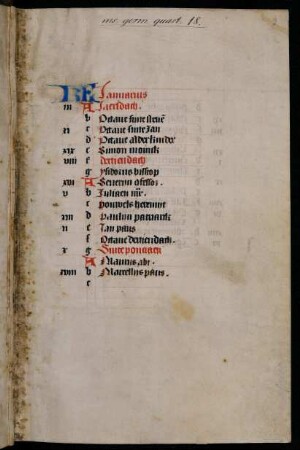 ms. germ. quart. 18.
KL Januarius
iii A Jaersdach.
b Octave sunte steuen
xi c Octave sunte Jan
d Octave alder kinder
xix e Simon monick
viii f Dertiendach
g ysidorus bisscop
xvi A Severus confessor
v b Juliaen mr.
c pouwels heremijt
xiii d Paulus patriarck
ii e Jan paus
f Octave dertiendach.
x g Sunte pontiaen
A Maurus abt.
xviii b Marcellus paus.
c